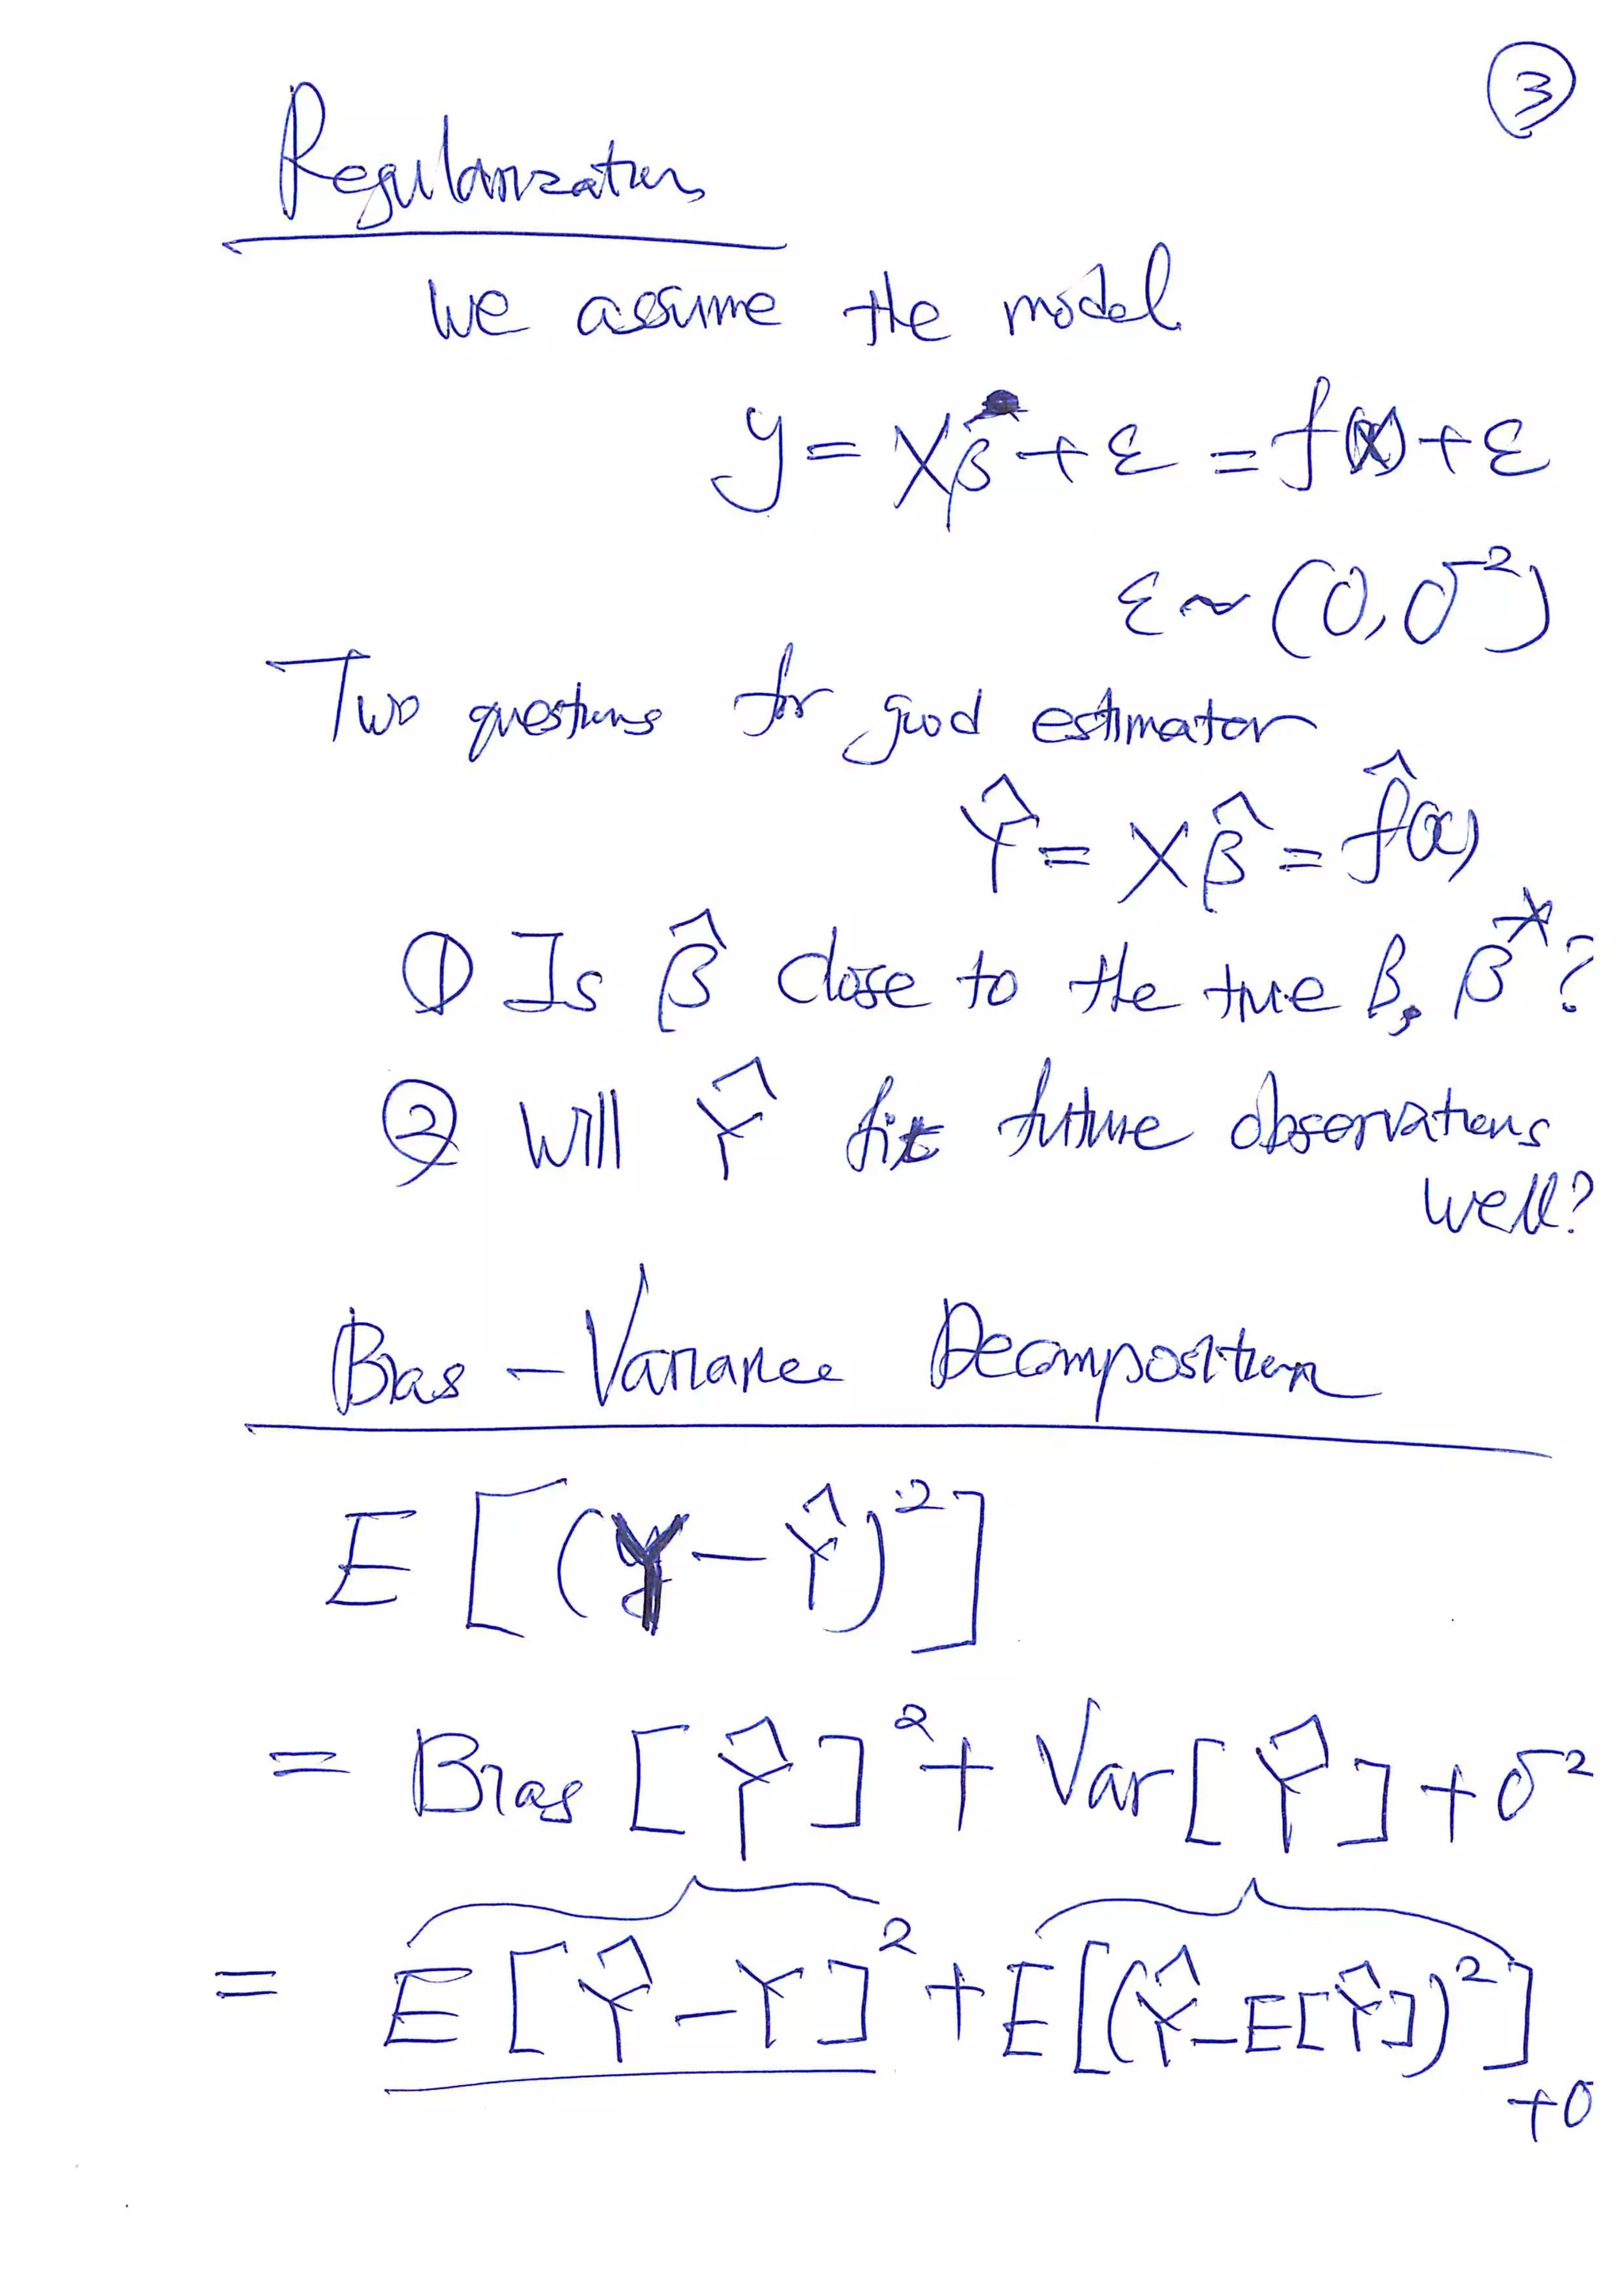 ③
Regularization
We assume the model
y = Xβ + ε = f(X) + ε
ε ~ (0, σ²)
Two questions for good estimator
Ŷ = Xβ̂ = f̂(x)
① Is β̂ close to the true β, β*?
② Will Ŷ fit future observations
well?
Bias - Variance Decomposition
E[(Y - Ŷ)²]
= Bias[Ŷ]² + Var[Ŷ] + σ²
= E[Ŷ - Y]² + E[(Ŷ - E[Ŷ])²]
+σ